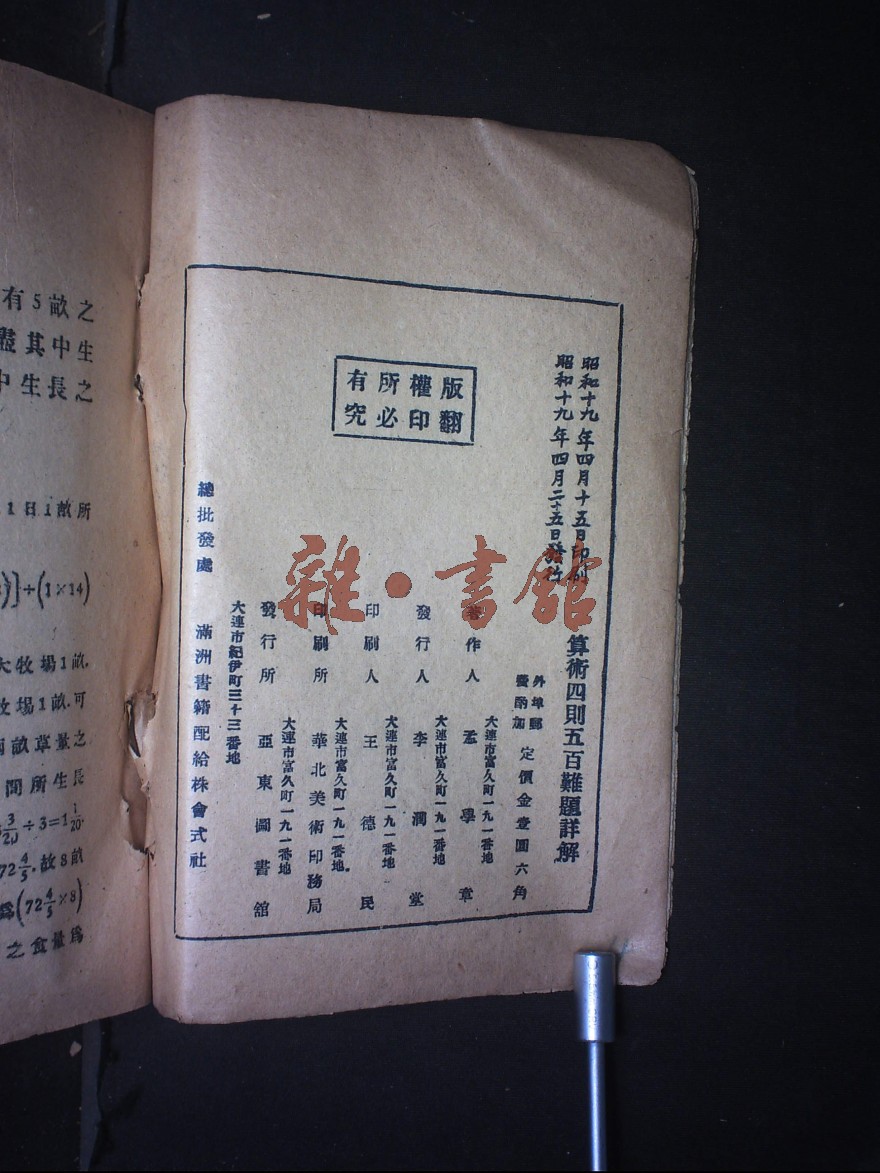 昭和十九年四月十五日印刷
昭和十九年四月二十五日發行
版權所有
翻印必究
算術四則五百難題詳解
外埠郵
費酌加
定價金壹圓六角
著作人 孟學章
大連市富久町一九一番地
發行人 李潤堂
大連市富久町一九一番地
印刷人 王德民
大連市富久町一九一番地
印刷所 華北美術印務局
大連市富久町一九一番地。
發行所 亞東圖書館
大連市富久町一九一番地
大連市紀伊町三十三番地
總批發處 滿洲書籍配給株會式社
雜·書舘
有5畝之
盡其中生
中生長之
1日1畝所
)]÷(1×14)
大牧場1畝.
牧場1畝.可
畝草量之
間所生長
3/20÷3=1 1/20.
72 4/5.故8畝
爲(72 4/5×8)
之食量爲